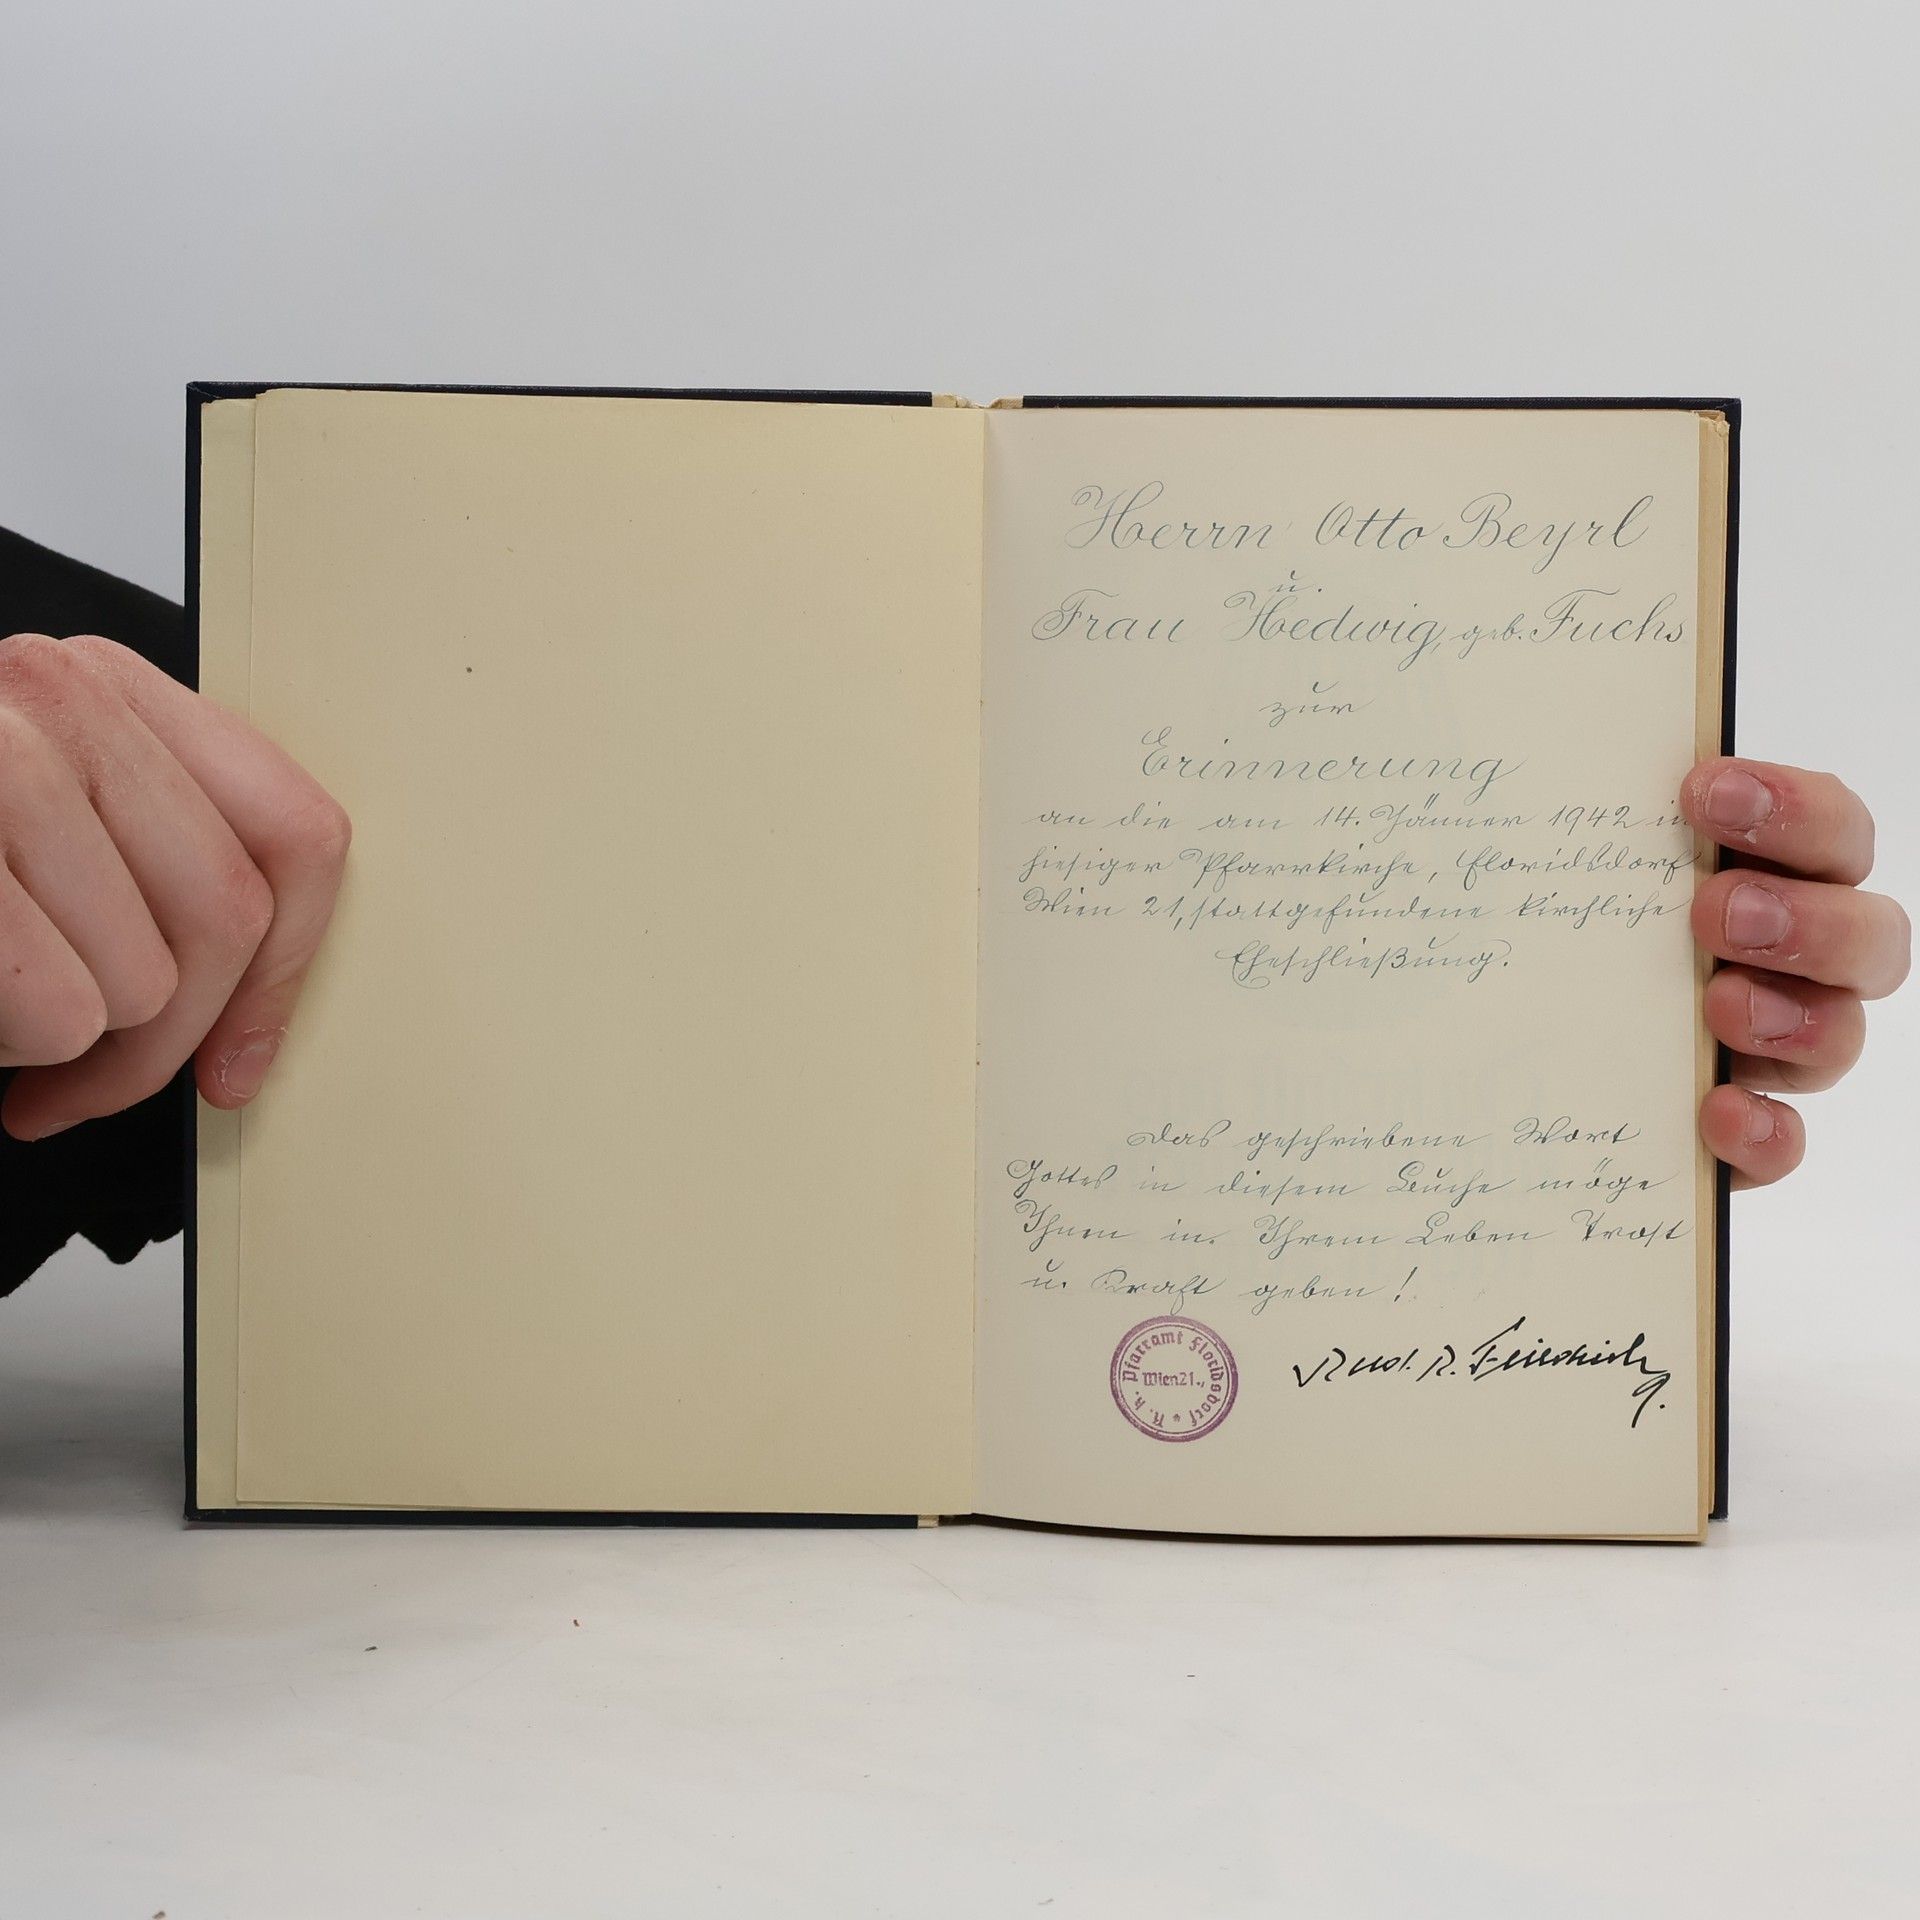 Herrn Otto Beyrl
u.
Frau Hedwig, geb. Fuchs
zur
Erinnerung
an die am 14. Jänner 1942 in
hiesiger Pfarrkirche, Floridsdorf
Wien 21, stattgefundene kirchliche
Eheschließung.
Das geschriebene Wort
Gottes in diesem Buche möge
Ihnen in Ihrem Leben Trost
u. Kraft geben!
R. k. Pfarramt Floridsdorf
Wien 21.,
R. Friedrich